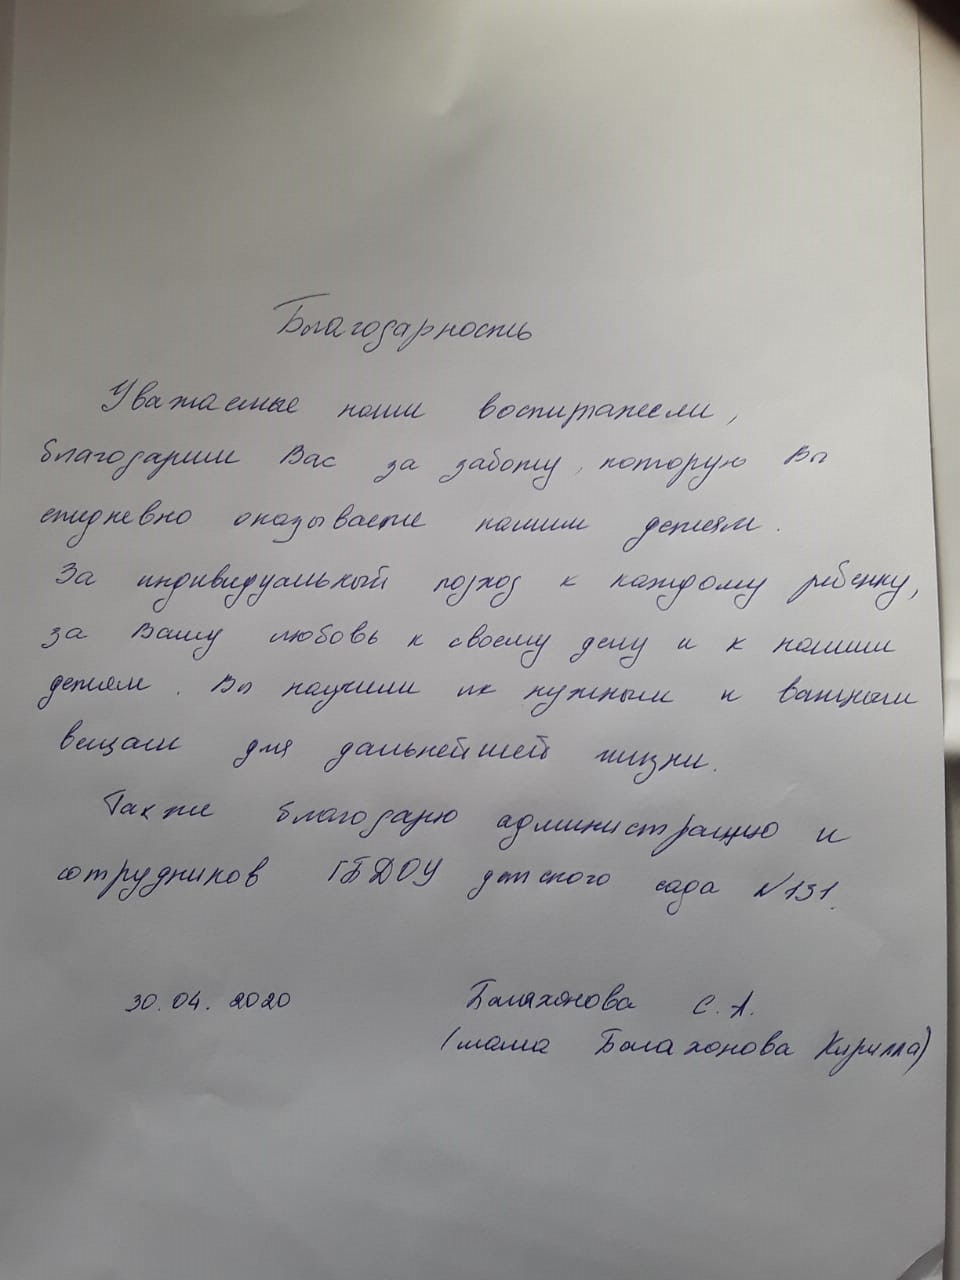 Благодарность
Уважаемые наши воспитатели,
благодарим Вас за заботу, которую Вы
ежедневно оказываете нашим детям.
За индивидуальный подход к каждому ребенку,
за Вашу любовь к своему делу и к нашим
детям. Вы научили их нужным и важным
вещам для дальнейшей жизни.
Также благодарю администрацию и
сотрудников ГБДОУ детского сада №131.
30.04.2020 Балахонова С.А.
(мама Балахонова Кирилла)